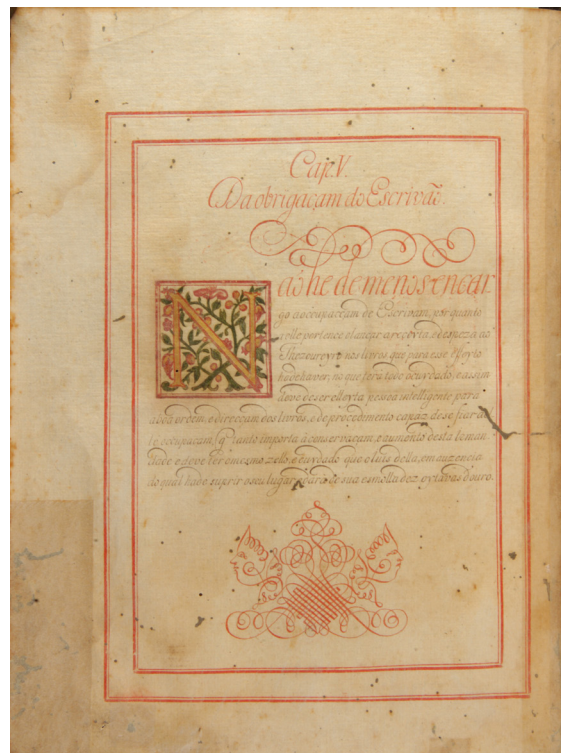 Cap. V.
Da obrigaçam do Escrivaõ.
Naõ he de menos encar
go a occupaçam de Escrivam, porquanto
a elle pertence lançar a receyta, e despeza ao
Thezoureyro nos livros que para esse effeyto
hade haver, no que terá todo o cuydado, e assim
deve de ser esta pessoa intelligente para
a boa ordem, e direcçam dos livros, e de procedimento capáz, de se fiar a
tal occupaçam, q̃ tanto importa á conservaçam, e augmento desta Irman
dade e deve ter o mesmo zello, e cuydado que o Iuis della, em auzencia
do qual hade suprir o seu lugar, e dará de sua esmolla dez oytavas douro.